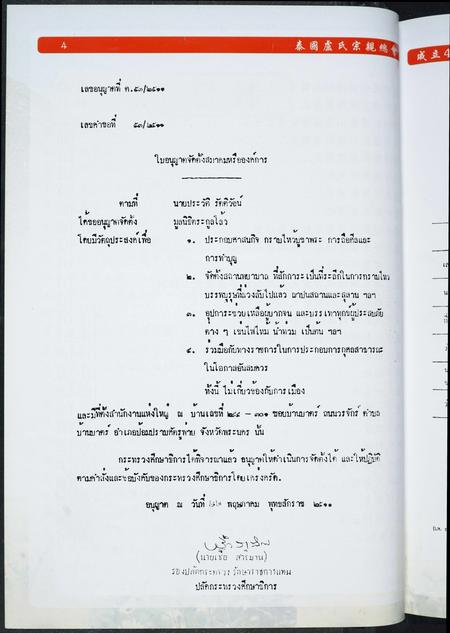 4
泰國盧氏宗親總會
成立4
เลขอนุญาตที่ ต.๕๐/๒๕๑๑
เลขคำขอที่ ๕๓/๒๕๑๑
ใบอนุญาตจัดตั้งสมาคมหรือองค์การ
ตามที่ นายประวัติ รัตติวัธน์
ได้ขออนุญาตจัดตั้ง มูลนิธิตระกูลโล้ว
โดยมีวัตถุประสงค์เพื่อ ๑. ประกอบศาสนกิจ กราบไหว้บูชาพระ การถือศีลและ
การทำบุญ
๒. จัดตั้งสถานพยาบาล ที่สักการะเป็นที่ระลึกในการกราบไหว้
บรรพบุรุษที่ล่วงลับไปแล้ว ฌาปนสถานและสุสาน ฯลฯ
๓. อุปการะช่วยเหลือผู้ยากจน และบรรเทาทุกข์ผู้ประสบภัย
ต่าง ๆ เช่นไฟไหม้ น้ำท่วม เป็นต้น ฯลฯ
๔. ร่วมมือกับทางราชการในการประกอบการกุศลสาธารณะ
ในโอกาสอันสมควร
ทั้งนี้ ไม่เกี่ยวข้องกับการเมือง
และมีที่ตั้งสำนักงานแห่งใหญ่ ณ บ้านเลขที่ ๒๙๙ – ๓๐๑ ซอยบ้านบาตร์ ถนนวรจักร์ ตำบล
บ้านบาตร์ อำเภอป้อมปราบศัตรูพ่าย จังหวัดพระนคร นั้น
กระทรวงศึกษาธิการได้พิจารณาแล้ว อนุญาตให้ดำเนินการจัดตั้งได้ และให้ปฏิบัติ
ตามคำสั่งและข้อบังคับของกระทรวงศึกษาธิการโดยเคร่งครัด.
อนุญาต ณ วันที่ พฤษภาคม พุทธศักราช ๒๕๑๑
(นายเชื้อ สาริมาน)
รองปลัดกระทรวง รักษาราชการแทน
ปลัดกระทรวงศึกษาธิการ